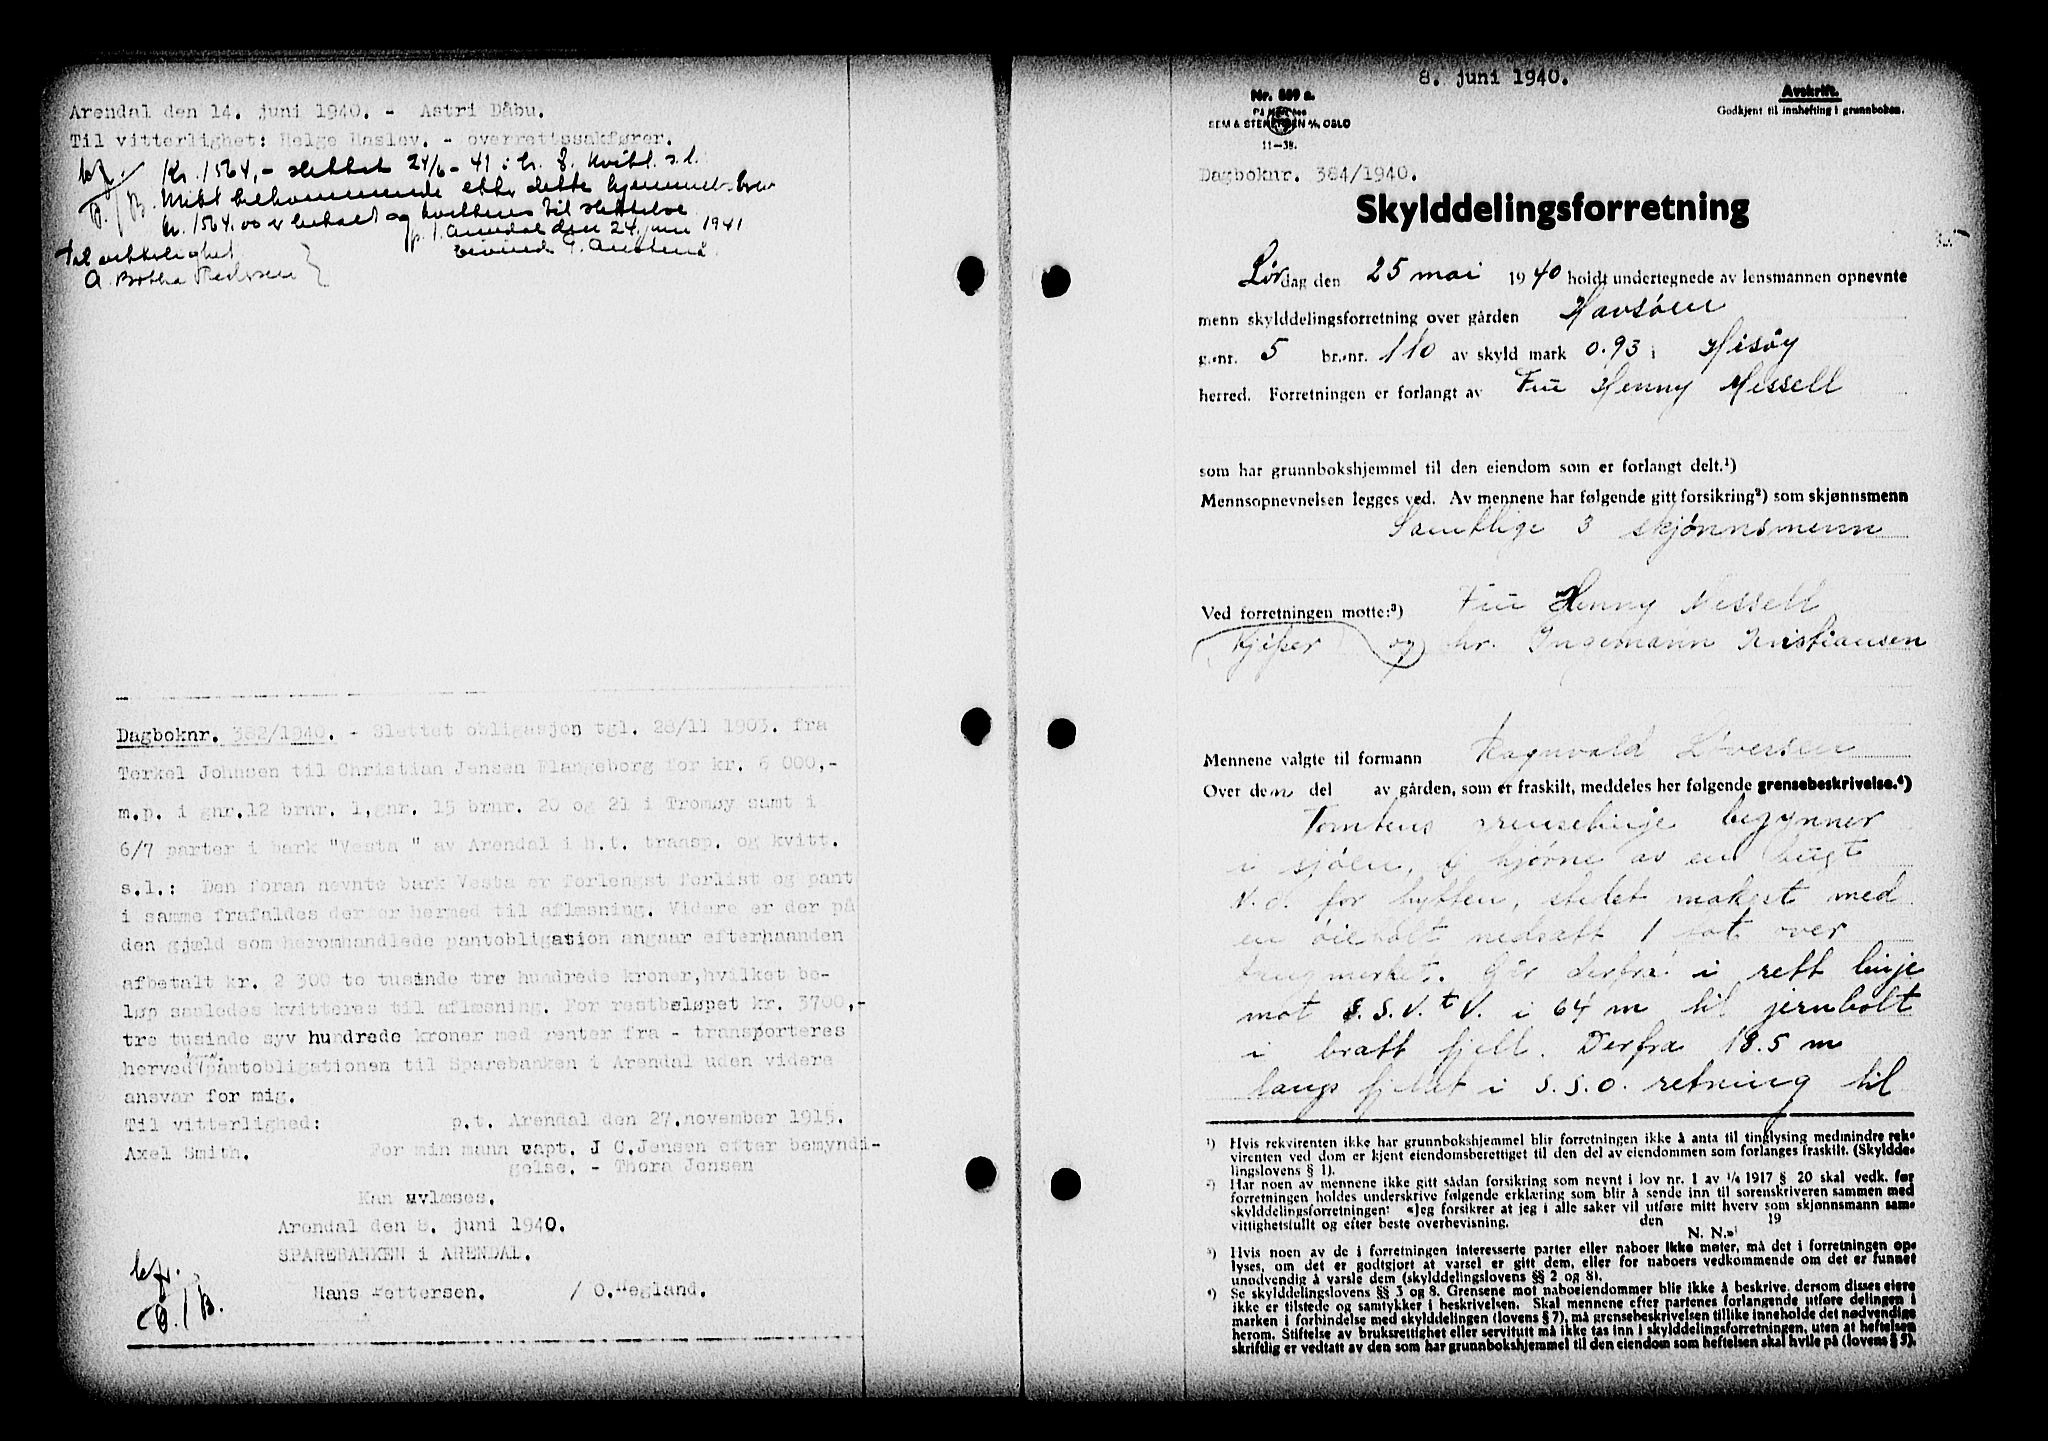 Arendal den 14. juni 1940. - Astri Dåbu.
Til vitterlighet: Helge Haslev. - overrettssakfører.
Kr. 1564,- slettet 24/6-41 i h. t. kvitt. s.l.
Mitt tilkommende etter dette hjemmelsbrev
kr. 1564.00 er betalt og kvitteres til slettelse
p.t. Arendal den 24. juni 1941
Til vitterlighet
Dagboknr. 382/1940. - Slettet obligasjon tgl. 28/11 1903. fra
Terkel Johnsen til Christian Jensen Flangeborg for kr. 6 000,-
m.p. i gnr.12 brnr. 1,gnr. 15 brnr. 20 og 21 i Tromøy samt i
6/7 parter i bark "Vesta " av Arendal i h.t. transp. og kvitt.
s.l.: Den foran nevnte bark Vesta er forlengst forlist og pant
i samme frafaldes derfor hermed til aflæsning. Videre er der på
den gjæld som heromhandlede pantobligasion angaar efterhaanden
afbetalt kr. 2 300 to tusinde tre hundrede kroner,hvilket be-
løp saaledes kvitteres til aflæsning. For restbeløpet kr. 3700,-
tre tusinde syv hundrede kroner med renter fra - transporteres
herved pantobligationen til Sparebanken i Arendal uden videre
ansvar for mig.
Til vitterlighed: p.t. Arendal den 27.november 1915.
Axel Smith. For min mann capt. J C.Jensen efter bemyndi-
gelse. - Thora Jensen
Kan avlæses.
Arendal den 8. juni 1940.
SPAREBANKEN i ARENDAL.
Hans Pettersen. / O.Hegland.
8. juni 1940.
Nr. 889 a.
SEM & STENERSEN A/S, OSLO
11-38.
Avskrift.
Godkjent til innhefting i grunnboken.
Dagboknr. 384/1940.
Skylddelingsforretning
Lørdag den 25 mai 1940 holdt undertegnede av lensmannen opnevnte
menn skylddelingsforretning over gården Havsøen
g.nr. 5 br.nr. 110 av skyld mark 0.93 i Hisøy
herred. Forretningen er forlangt av Fru Henny Messell
som har grunnbokshjemmel til den eiendom som er forlangt delt.¹)
Mennsopnevnelsen legges ved. Av mennene har følgende gitt forsikring²) som skjønnsmenn
Samtlige 3 skjønnsmenn
Ved forretningen møtte:³) Fru Henny Messell
Kjøper og hr. Ingemann Kristiansen
Mennene valgte til formann Ragnvald Iversen
Over den del av gården, som er fraskilt, meddeles her følgende grensebeskrivelse.⁴)
Tomtens grenselinje begynner
i sjøen, hjørne av en bugt
N.O. for hytten, stedet makert med
en øiebolt nedsatt 1 fot over
taugmerket. Går derfra i rett linje
mot S.S.V.t V. i 64 m til jernbolt
i bratt fjell. Derfra 18.5 m
langs fjellet i S.S.O. retning til
¹) Hvis rekvirenten ikke har grunnbokshjemmel blir forretningen ikke å anta til tinglysing medmindre rek-
virenten ved dom er kjent eiendomsberettiget til den del av eiendommen som forlanges fraskilt. (Skyldde-
lingslovens § 1).
²) Har noen av mennene ikke gitt sådan forsikring som nevnt i lov nr. 1 av 1/6 1917 § 20 skal vedk. før
forretningen holdes underskrive følgende erklæring som blir å sende inn til sorenskriveren sammen med
skylddelingsforretningen: «Jeg forsikrer at jeg i alle saker vil utføre mitt hverv som skjønnsmann sam-
vittighetsfullt og efter beste overbevisning. den 19
N. N.»
³) Hvis noen av de i forretningen interesserte parter eller naboer ikke møter, må det i forretningen op-
lyses, om det er godtgjort at varsel er gitt dem, eller for naboers vedkommende om det er funnet
unødvendig å varsle dem (skylddelingslovens §§ 2 og 8).
⁴) Se skylddelingslovens §§ 3 og 8. Grensene mot naboeiendommer blir ikke å beskrive. dersom disses eiere
ikke er tilstede og samtykker i beskrivelsen. Skal mennene efter partenes forlangende utføre delingen i
marken i forbindelse med skylddelingen (lovens § 7), må grensebeskrivelsen tillike inneholde det nødvendige
herom. Stiftelse av bruksrettighet eller servitutt må ikke tas inn i skylddelingsforretningen, uten at heftelsen
skriftlig er vedtatt av den som har grunnbokshjemmel til den eiendom som heftelsen skal hvile på (lovens § 5).